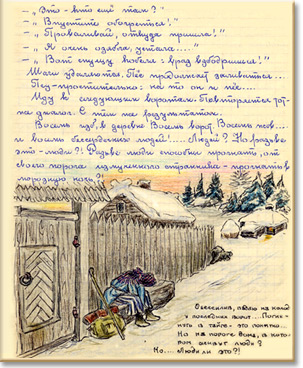 – „Это - кто ещё там?"
– „Впустите обогреться!"
– „Проваливай, откуда пришла!"
– „Я очень озябла, устала....."
– „Вот спущу кобеля: враз взбодришься!"
Шаги удаляются. Пёс продолжает заливаться...
Пёс - простительно: на то он и пёс...
Иду к следующим воротам. Повторяется тот-
же диалог. С тем же результатом.
Восемь изб, в деревне. Восемь ворот. Восемь псов....
и восемь бессердечных людей!..... Людей? Но разве
это - люди?! Разве люди способны прогнать, от
своего порога измученного странника - прогнать в
морозную ночь?!
Обессилив, падаю на колоду
у последних ворот.... Погиб-
нуть в тайге - это понятно...
Но на пороге дома, в кото-
ром живут люди?
Но.... Люди ли это?!